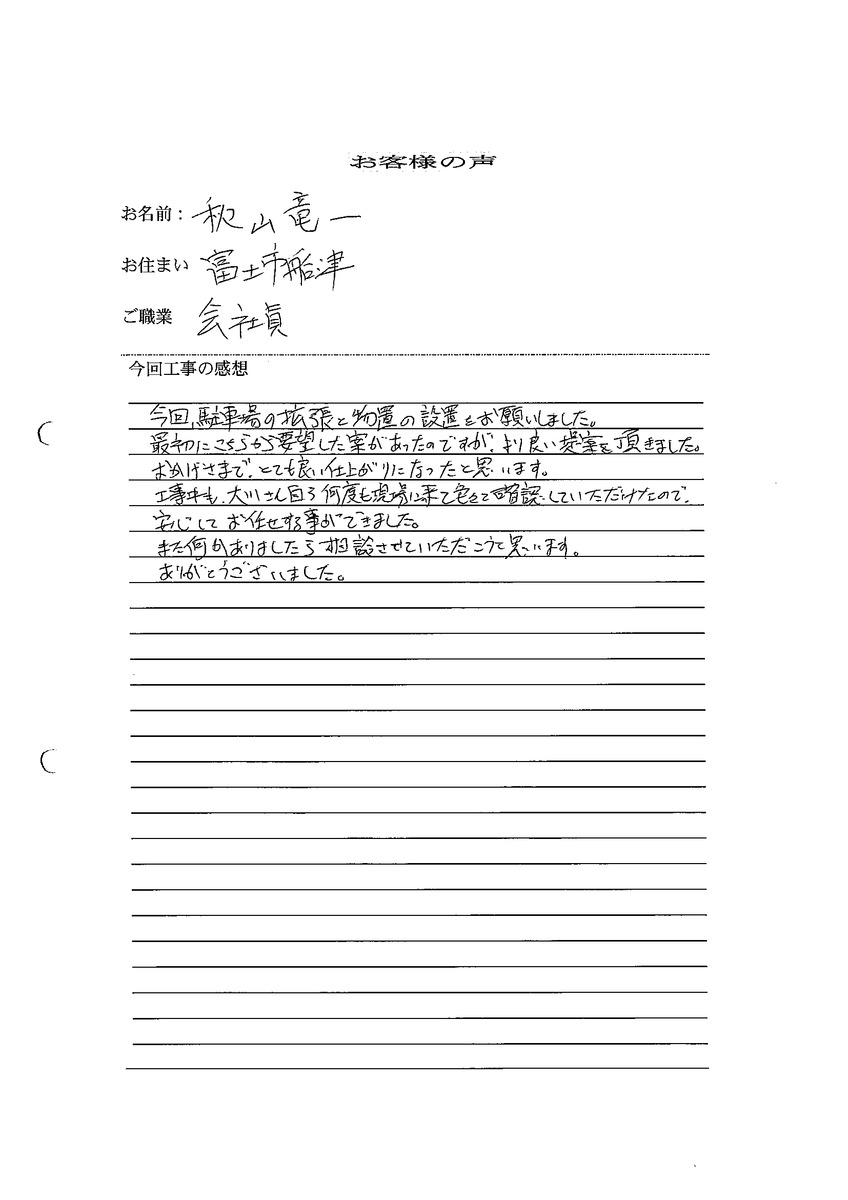 お客様の声
お名前： 秋山竜一
お住まい 富士市船津
ご職業 会社員
今回工事の感想
今回、駐車場の拡張と物置の設置をお願いしました。
最初にこちらから要望した案があったのですが、より良い提案を頂きました。
おかげさまで、とても良い仕上がりになったと思います。
工事中も、大川さん自ら何度も現場に来て色々て確認していただけたので、
安心してお任せする事ができました。
また何かありましたら相談させていただこうと思います。
ありがとうございました。